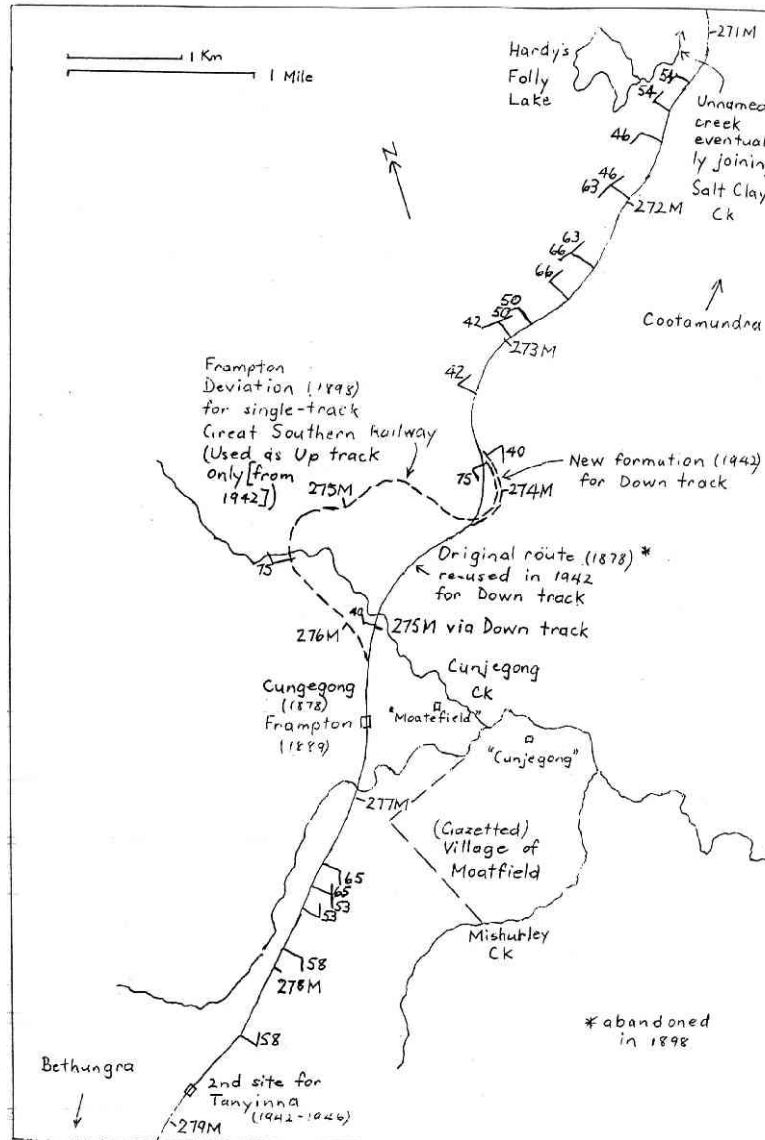 1 Km
1 Mile
Hardy's
Folly
Lake
271M
54
54
Unnamed
creek
eventual-
ly joining
Salt Clay
Ck
46
46
63
272M
N
63
66
66
Cootamundra
50
50
42
273M
42
Frampton
Deviation (1898)
for single-track
Great Southern Railway
(Used as Up track
only [from
1942])
275M
40
75
New formation (1942)
for Down track
274M
Original route (1878) *
re-used in 1942
for Down track
75
40
276M
275M via Down track
Cungegong
(1878)
Frampton
(1889)
Cunjegong
Ck
"Moatefield"
"Cunjegong"
277M
(Gazetted)
Village of
Moatfield
65
65
53
53
Mishurley
Ck
58
278M
58
* abandoned
in 1898
Bethungra
2nd site for
Tanyinna
(1942-1946)
279M